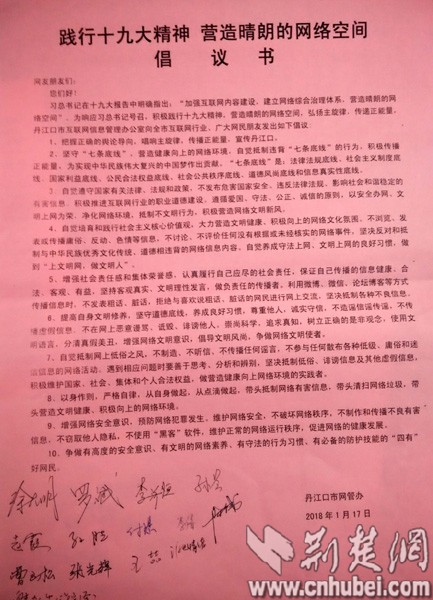 践行十九大精神 营造晴朗的网络空间
倡 议 书
网友朋友们:
您们好!
习总书记在十九大报告中明确指出:“加强互联网内容建设,建立网络综合治理体系,营造晴朗的
网络空间”。为响应习总书记号召,积极践行十九大精神,营造晴朗的网络空间,弘扬主旋律,传递正能量,
丹江口市互联网信息管理办公室向全市互联网行业,广大网民朋友发出如下倡议:
1、把握正确的舆论导向,唱响主旋律,传播正能量,宣传丹江口。
2、坚守“七条底线”,营造健康向上的网络环境,自觉抵制违背“七条底线”的行为,积极传播正
能量,为实现中华民族伟大复兴的中国梦作出贡献。“七条底线”是:法律法规底线、社会主义制度底
线、国家利益底线、公民合法权益底线、社会公共秩序底线、道德风尚底线和信息真实性底线。
3、自觉遵守国家有关法律、法规和政策,不发布危害国家安全、违反法律法规、影响社会和谐稳定的
有害信息。积极推进互联网行业的职业道德建设,遵循爱国、守法、公正、诚信的原则,以安全办网、文
明上网为荣,净化网络环境,抵制不文明行为,积极营造网络文明新风。
4、自觉培育和践行社会主义核心价值观,大力营造文明健康、积极向上的网络文化氛围,不浏览、发
表或传播庸俗、反动、色情等信息,不讨论、不评价任何没有根据或未经核实的网络事件,坚决反对和抵
制与中华民族优秀文化传统、道德相违背的网络信息内容,自觉养成守法上网、文明上网的良好习惯,做
到“上文明网、做文明人”。
5、增强社会责任感和集体荣誉感,认真履行自己应尽的社会责任,保证自己传播的信息健康、合
法、客观、有益,坚持客观真实、文明理性发言,做负责任的传播者,利用微博、微信、论坛博客等方式
传播信息时,不发表粗话、脏话,拒绝与喜欢说粗话、脏话的网民进行网上交流,坚决抵制各种不良信息。
6、提高自身文明修养,坚守道德底线,养成良好习惯,尊重他人,诚实守信,不造谣信谣传谣,不传
播虚假信息。不在网上恶意谩骂、诋毁、诽谤他人,崇尚科学,追求真知,树立正确的是非观念,使用文
明语言,分清真假美丑,增强网络文明意识,倡导文明风尚,争做网络文明使者。
7、自觉抵制网上低俗之风,不制造、不听信、不传播任何谣言,不参与任何散布各种低级、庸俗和迷
信信息的网络活动。遇到相应问题时要善于思考,分析和辨别,坚决抵制低俗、诽谤信息及其他虚假信息,
积极维护国家、社会、集体和个人合法权益,做营造健康向上网络环境的实践者。
8、以身作则,严格自律,从自身做起,从点滴做起,带头抵制网络有害信息,带头清扫网络垃圾,带
头营造文明健康、积极向上的网络环境。
9、增强网络安全意识,预防网络犯罪发生,维护网络安全,不破坏网络秩序,不制作和传播不良有害
信息,不窃取他人隐私,不使用“黑客”软件,维护正常的网络运行秩序,促进网络的健康发展。
10、争做有高度的安全意识、有文明的网络素养、有守法的行为习惯、有必备的防护技能的“四有”
好网民。
丹江口市网管办
2018 年 1 月 17 日
荆楚网
www.cnhubei.com